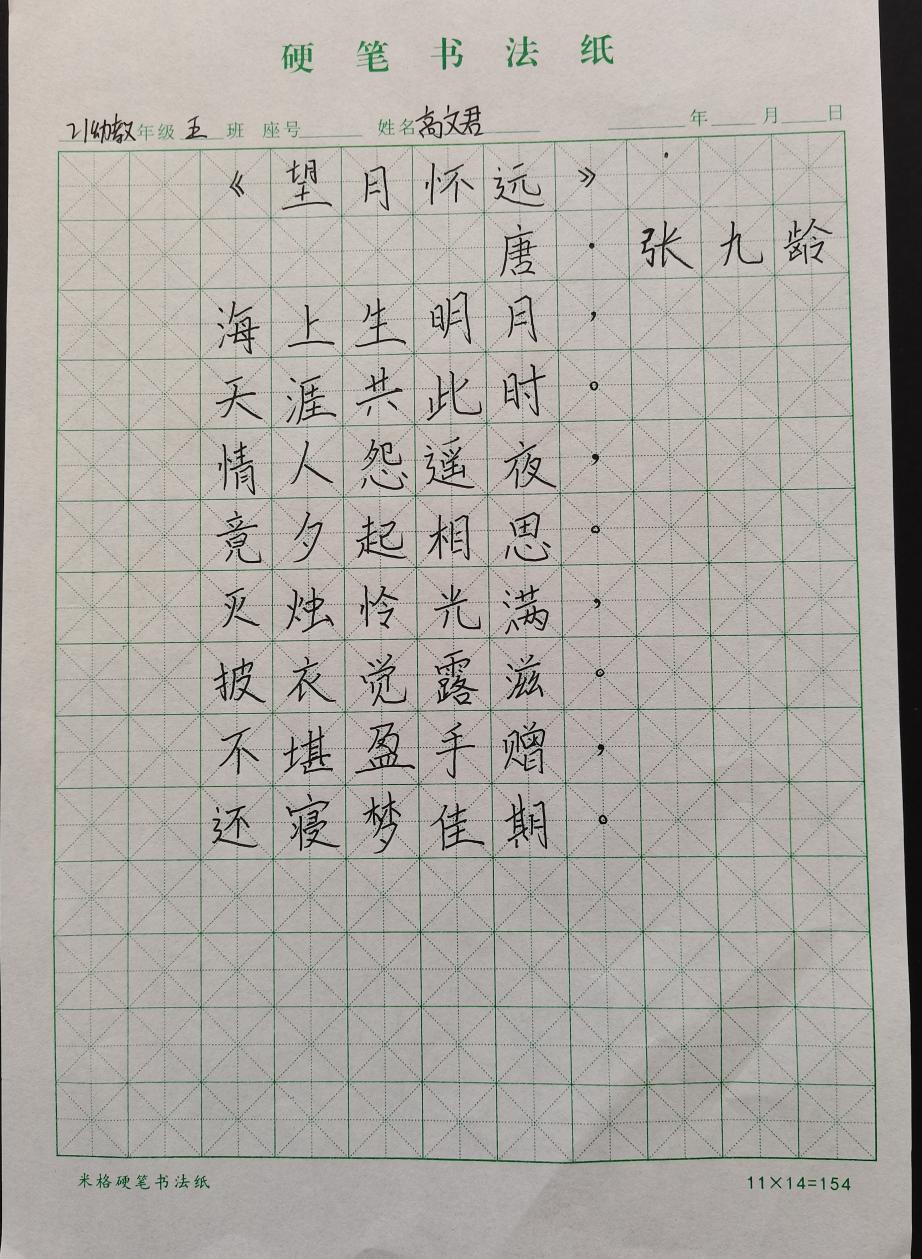 硬笔书法纸
21幼教年级 五 班 座号 姓名高文君 年 月 日
《望月怀远》
唐·张九龄
海上生明月，
天涯共此时。
情人怨遥夜，
竟夕起相思。
灭烛怜光满，
披衣觉露滋。
不堪盈手赠，
还寝梦佳期。
米格硬笔书法纸 11×14=154